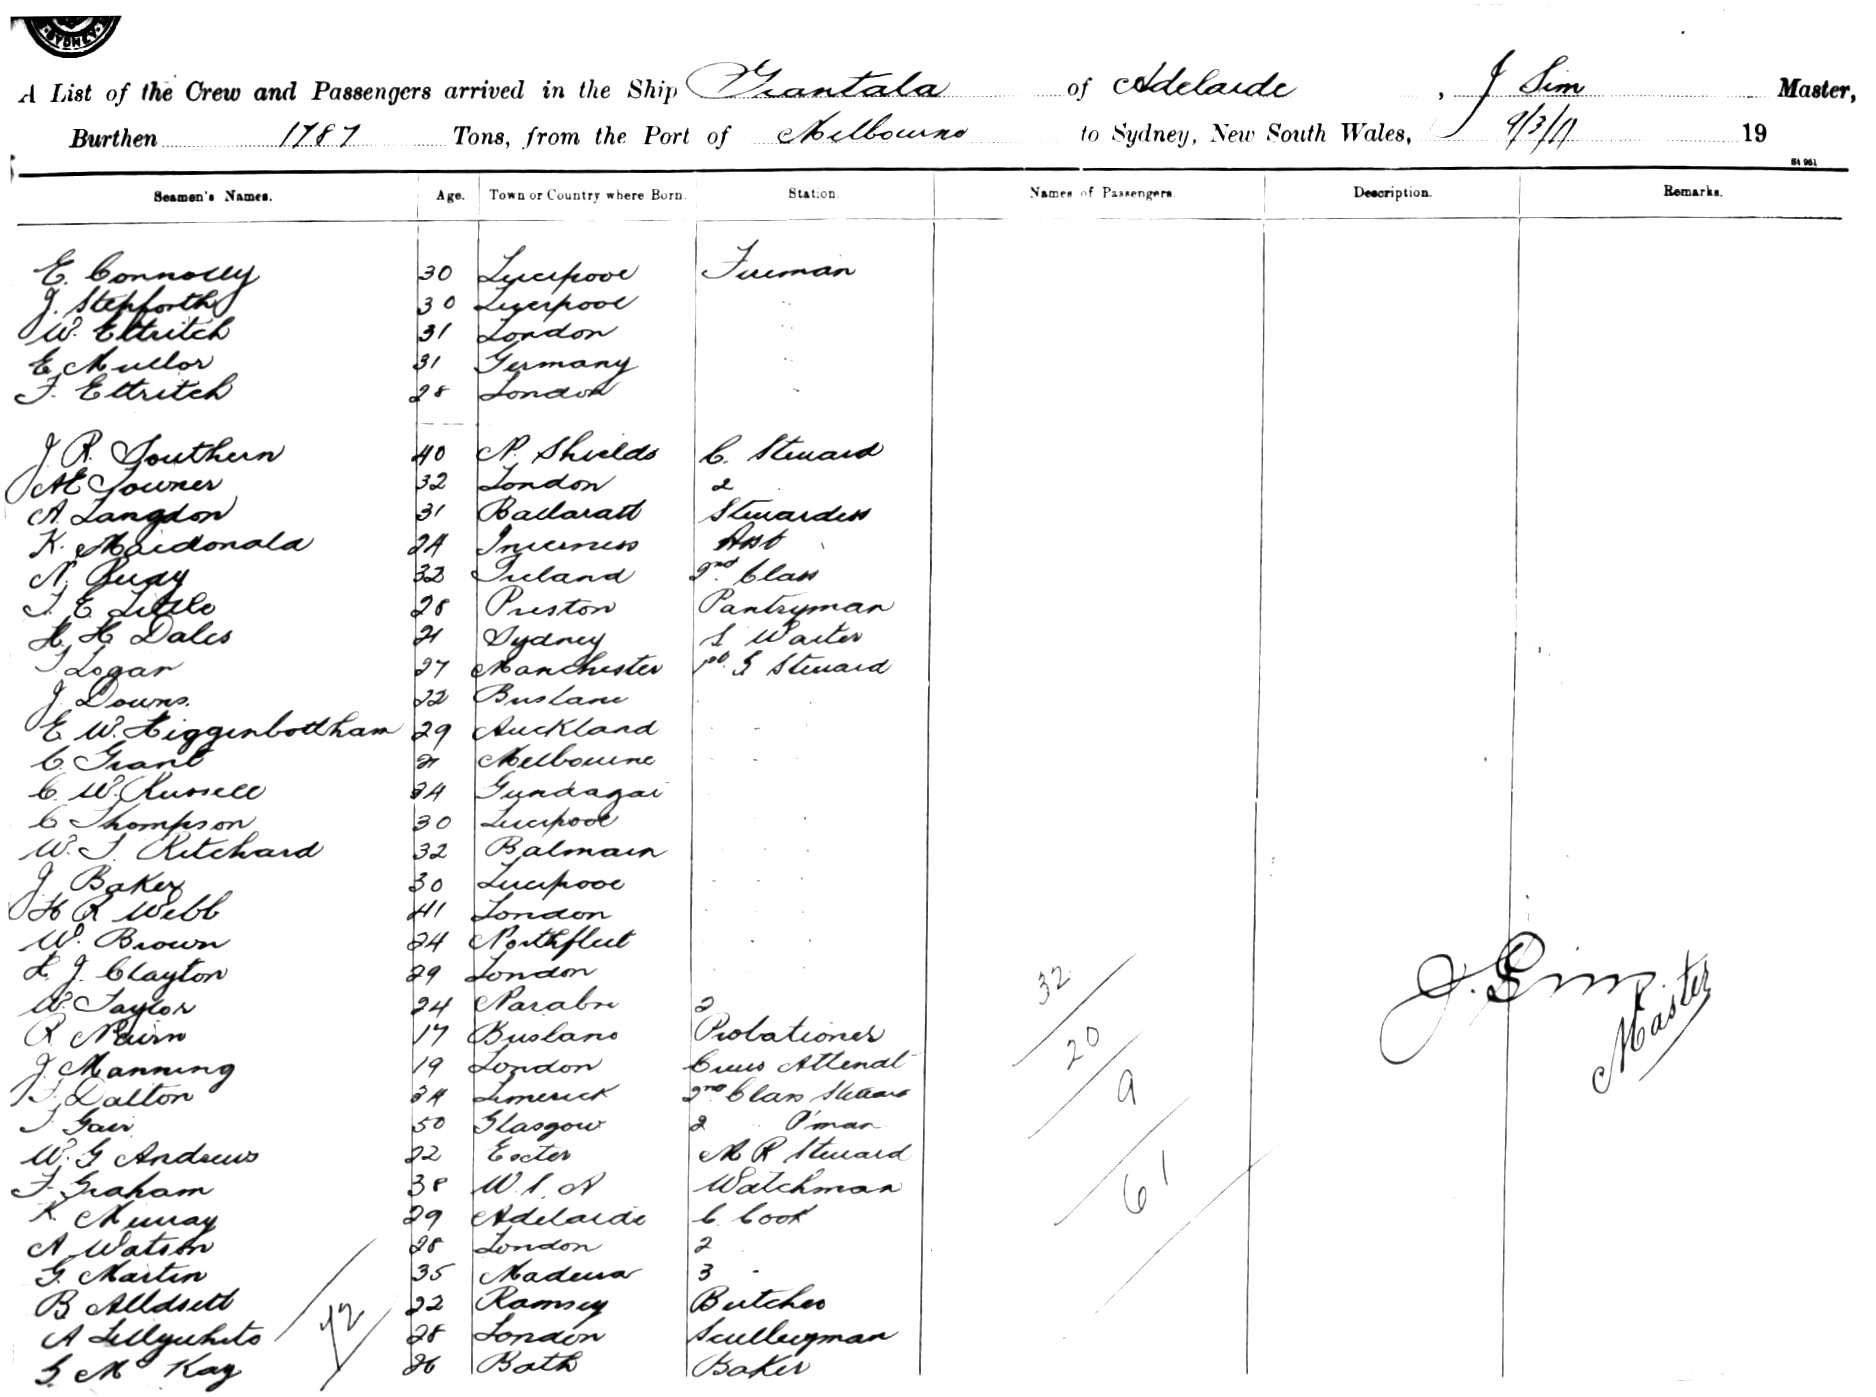 SYDNEY
A List of the Crew and Passengers arrived in the Ship Grantala of Adelaide, J Sim Master,
Burthen 1787 Tons, from the Port of Melbourne to Sydney, New South Wales, 9/3/11 19
St 961
Seamen's Names. Age. Town or Country where Born. Station. Names of Passengers. Description. Remarks.
E. Connolly 30 Liverpool Fireman
J. Stepforth 30 Liverpool
W. Ettritch 31 London
E Mullor 31 Germany
F. Ettritch 28 London
J R. Southern 40 N. Shields C. Steward
AE Towner 32 London 2
A. Langdon 31 Ballaratt Stewardess
K. Macdonald 24 Inverness Asst
N. 32 Ireland 2nd Class
T. E Little 28 Preston Pantryman
H. H Dales 21 Sydney S Waiter
T Logan 27 Manchester 1st G Steward
J. Downs. 22 Brisbane
E W. Higginbottham 29 Auckland
C. Grant 21 Melbourne
C. W. Russell 24 Gundagai
C Thompson 30 Liverpool
W. T. Ritchard 32 Balmain
J. Baker 30 Liverpool
H R Webb 41 London
W. Brown 24 Northfleet
H. J. Clayton 29 London
W. Taylor 24 2
R Nairn 17 Brisbane Probationer
J. Manning 19 London Crews Attendt
T. Dalton 34 Limerick 2nd Class Steward
T Gair 50 Glasgow 2 P'man
W. G Andrews 22 Exeter M R Steward
F. Graham 38 W.S.A Watchman
K. Murray 29 Adelaide C. Cook
A Watson 28 London 2
G. Martin 35 Madeira 3
B 22 Ramsey Butcher
A Lillywhite 28 London Sculleryman
G. Mc Kay 26 Bath Baker
32
20
9
61
12
J. Sim.
Master